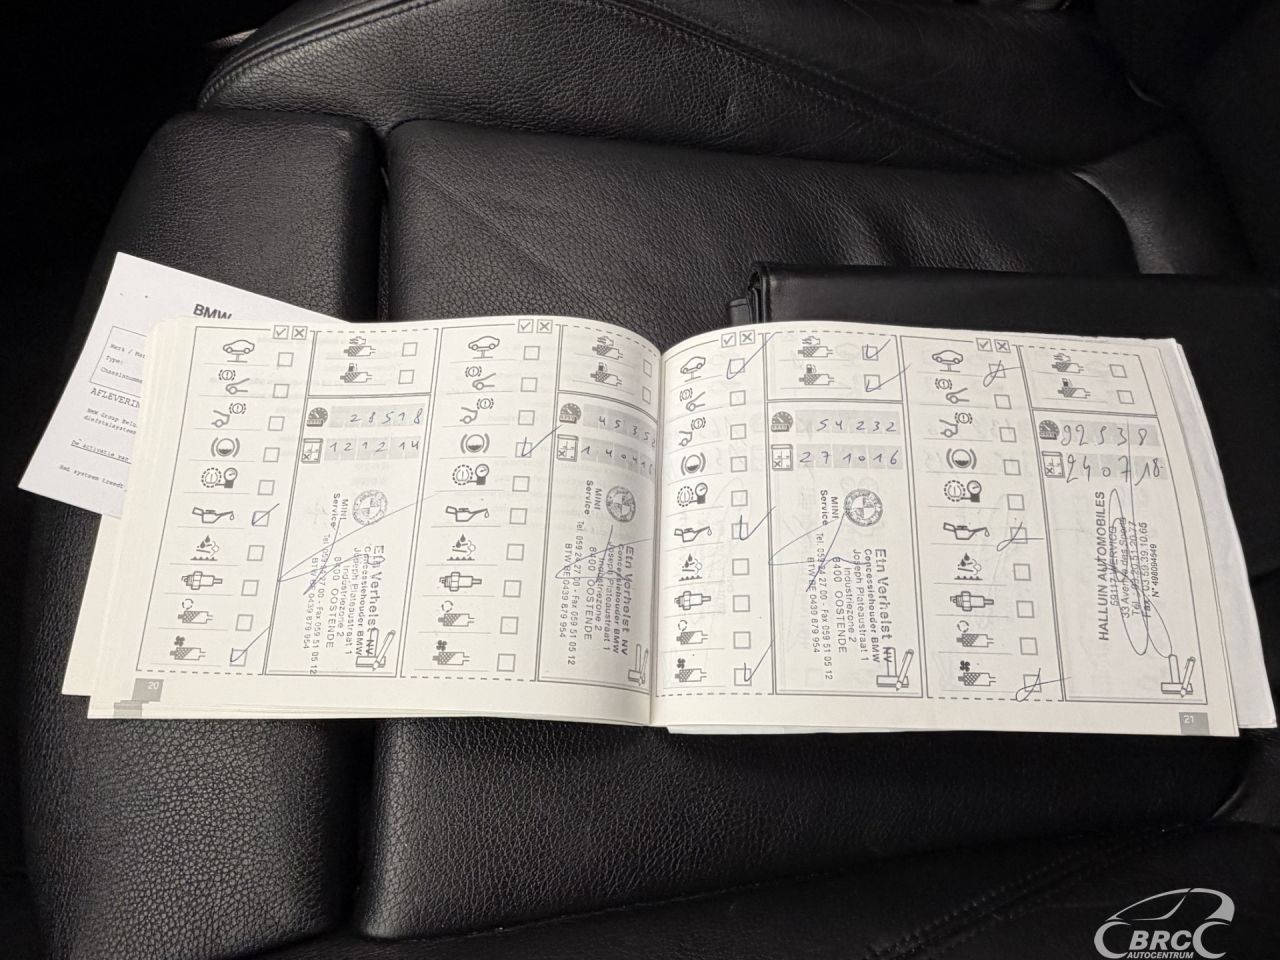 BMW
Merk / Mat
Type:
Chassisnumme
AFLEVERIN
BMW Group Belu
diefstalsysteem
De activatie van
Het systeem treedt
28518
121214
MINI
Service
Etn Verhelst NV
Concessiehouder BMW
Joseph Plateaustraat 1
Industriezone 2
8400 OOSTENDE
Tel. 059 24 27 00 - Fax 059 51 05 12
BTW BE 0439 879 954
20
4535
MINI
Service
Etn Verhelst NV
Concessiehouder BMW
Joseph Plateaustraat 1
Industriezone 2
8400 OOSTENDE
Tel. 059 24 27 00 - Fax 059 51 05 12
BTW BE 0439 879 954
54232
271016
MINI
Service
Etn Verhelst NV
Concessiehouder BMW
Joseph Plateaustraat 1
Industriezone 2
8400 OOSTENDE
Tel. 059 24 27 00 - Fax 059 51 05 12
BTW BE 0439 879 954
92938
240718
HALLUIN AUTOMOBILES
59117 WERVICQ
33 Avenue des Sports
21
BRC
AUTOCENTRUM